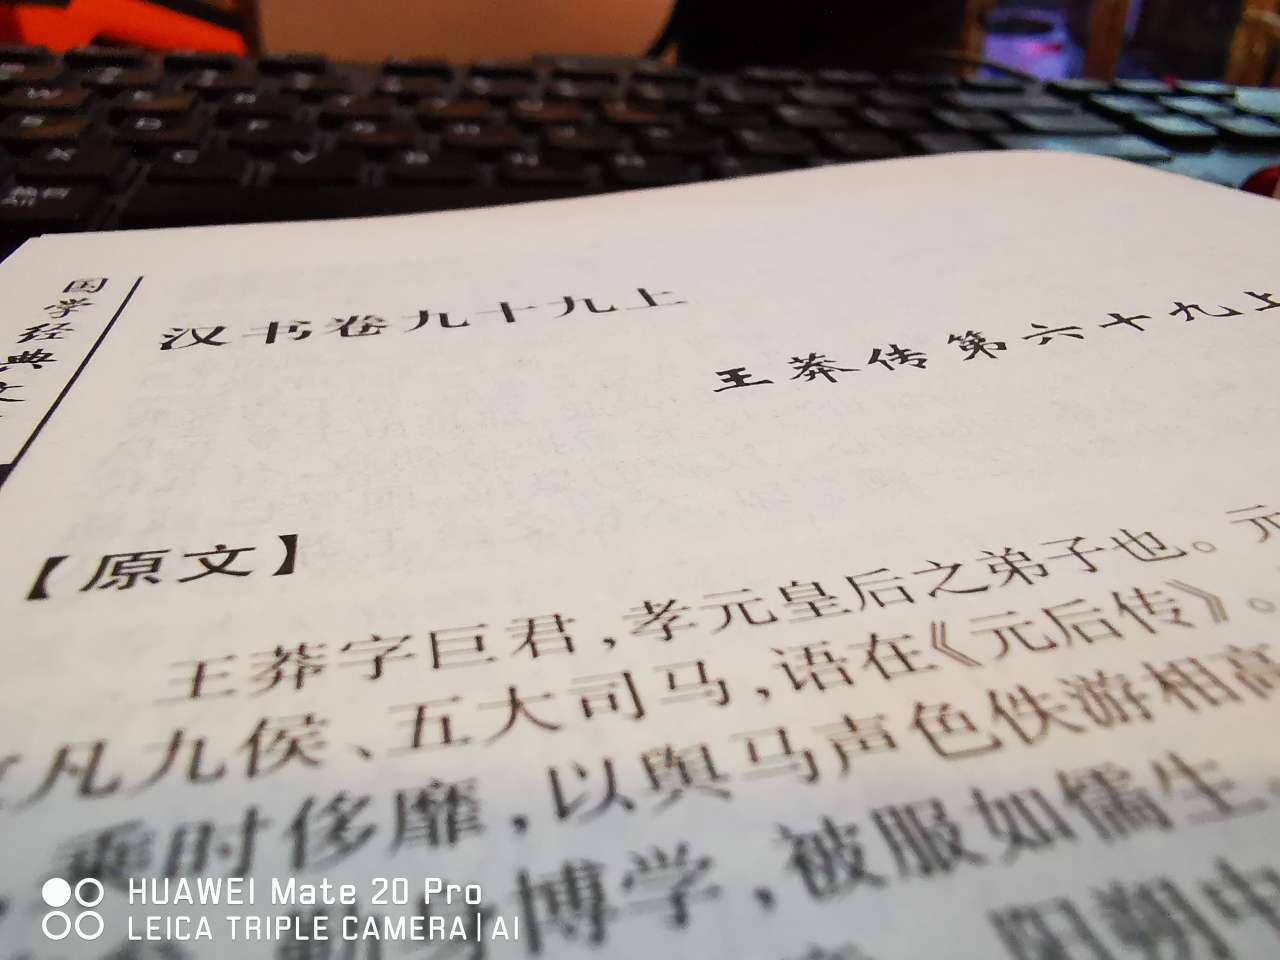 国学经典文
汉书卷九十九上
王莽传第六十九上
【原文】
王莽字巨君，孝元皇后之弟子也。元
凡九侯、五大司马，语在《元后传》。
乘时侈靡，以舆马声色佚游相高
博学，被服如儒生
阳朔中
HUAWEI Mate 20 Pro
LEICA TRIPLE CAMERA | AI